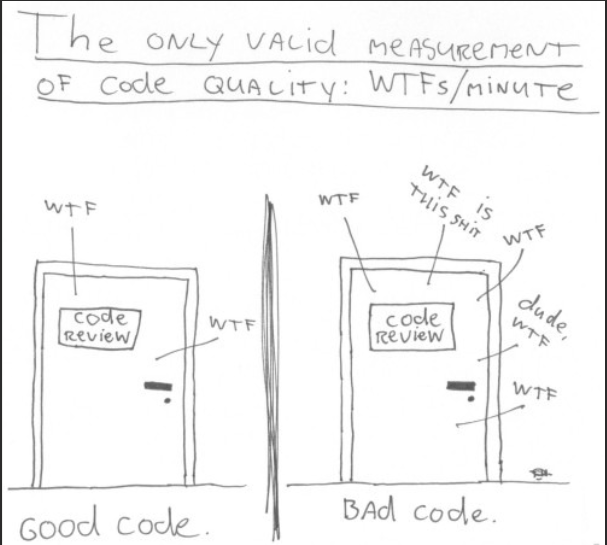 The ONLY VALID MEASUREMENT
OF Code QUALITY: WTFs/MINUTE
WTF
code
REVIEW
WTF
GOOD code.
WTF
WTF is
THIS SHIT
WTF
code
REVIEW
dude,
WTF
WTF
BAd code.